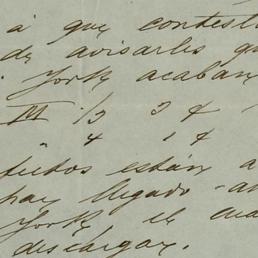 á que contest
de avisarles qu
York acaban
III 1/3 3 &
4 1 &
están a
hay llegado - a
York el
descargar.